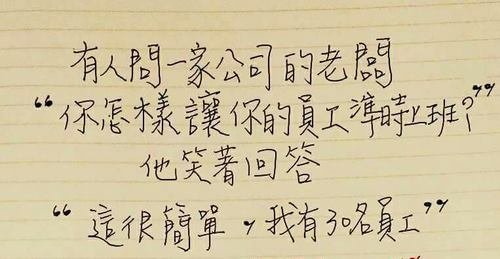 有人問一家公司的老闆
“你怎樣讓你的員工準時上班？”
他笑著回答
“這很簡單，我有30名員工”